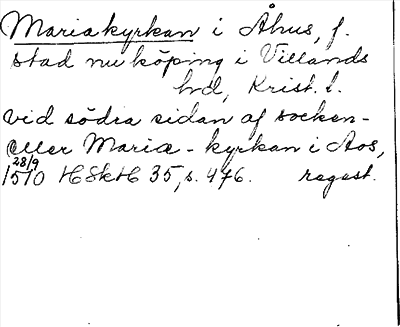 Mariakyrkan i Åhus, f.
stad nu köping i Villands
hd, Krist. l.
vid södra sidan af socken-
eller Maria-kyrkan i Aos,
28/9
1510 HSkH 35, s. 476. regest.